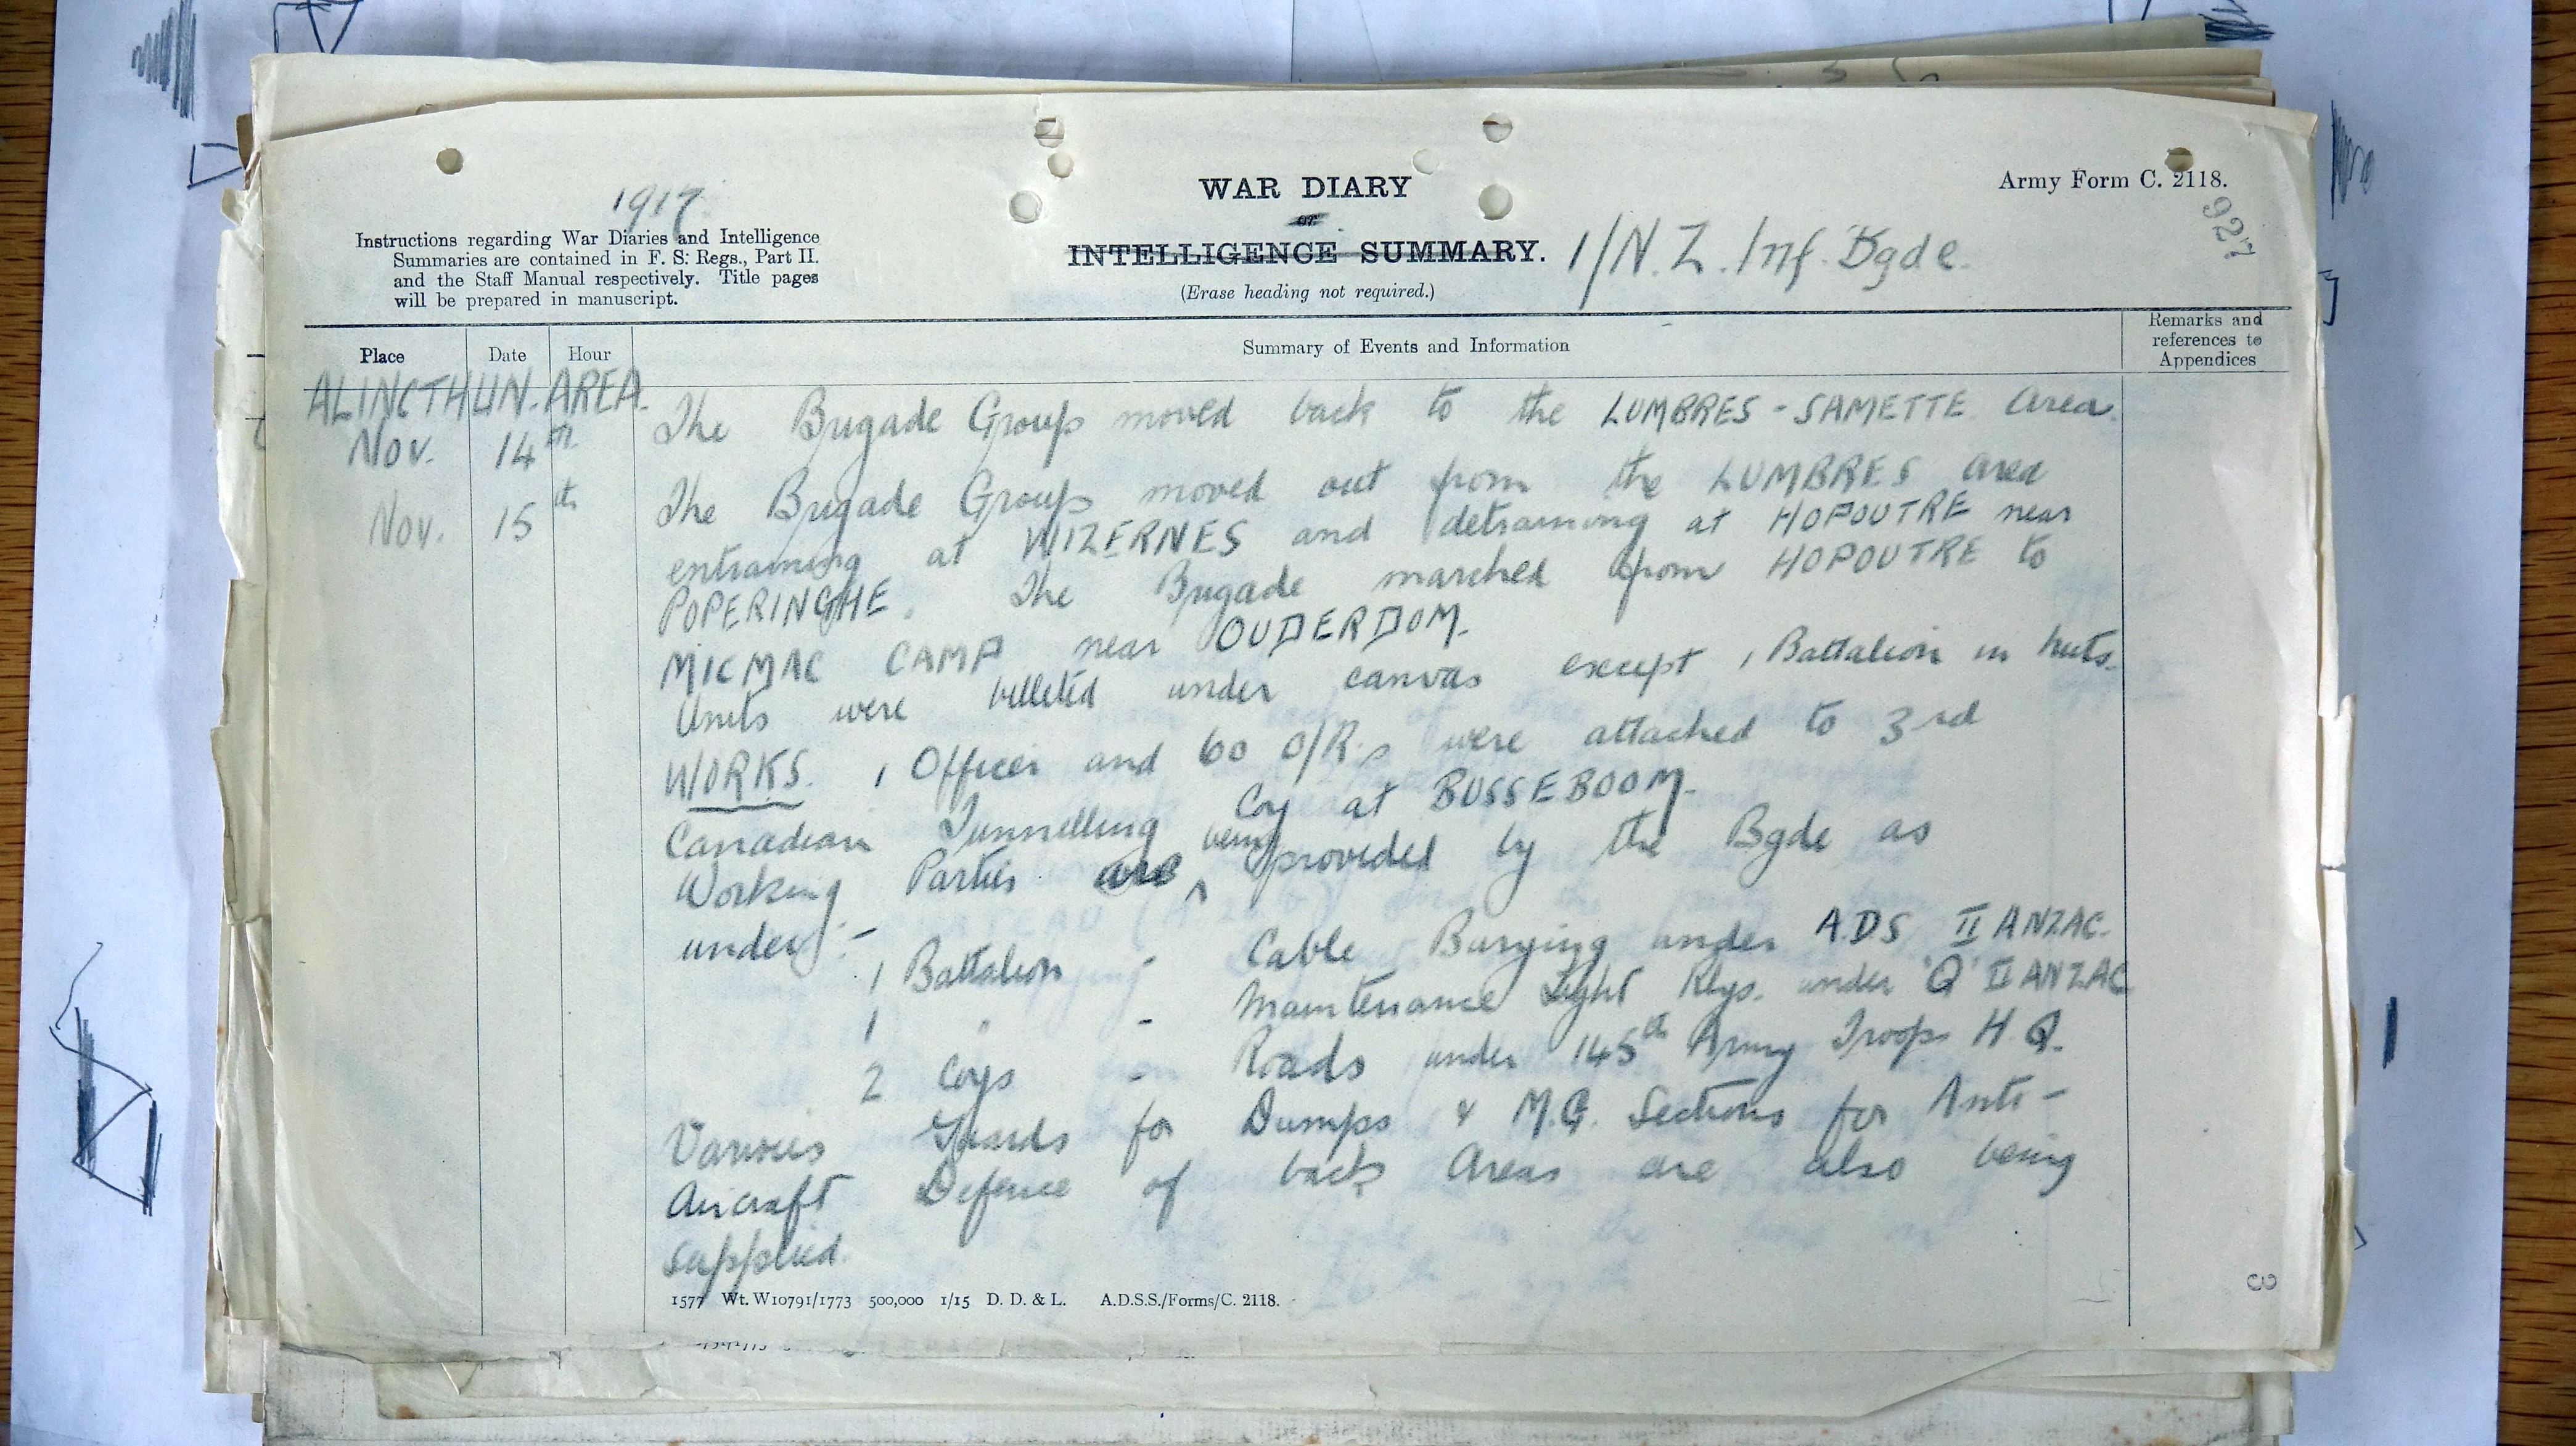 1917
WAR DIARY
OR
INTELLIGENCE SUMMARY.
(Erase heading not required.)
Army Form C. 2118.
927
1/N.Z. Inf. Bgde.
Instructions regarding War Diaries and Intelligence
Summaries are contained in F. S. Regs., Part II.
and the Staff Manual respectively. Title pages
will be prepared in manuscript.
Place Date Hour Summary of Events and Information Remarks and
references to
Appendices
ALINCTHUN AREA.
Nov. 14th The Brigade Group moved back to the LUMBRES - SAMETTE Area.
Nov. 15th The Brigade Group moved out from the LUMBRES area
entraining at WIZERNES and detraining at HOPOUTRE near
POPERINGHE. The Brigade marched from HOPOUTRE to
MICMAC CAMP near OUDERDOM.
Units were billeted under canvas except 1 Battalion in huts.
WORKS. 1 Officer and 60 O/R.s were attached to 3rd
Canadian Tunnelling Coy at BUSSEBOOM.
Working Parties are being provided by the Bgde as
under :-
1 Battalion - Cable Burying under A.D.S II ANZAC.
1 " - Maintenance Light Rlys. under 'Q' II ANZAC
2 Coys - Roads under 145th Army Troops H.Q.
Various Guards for Dumps & M.G. Sections for Anti-
Aircraft Defence of back Areas are also being
supplied.
1577 Wt. W10791/1773 500,000 1/15 D. D. & L. A.D.S.S./Forms/C. 2118.
3